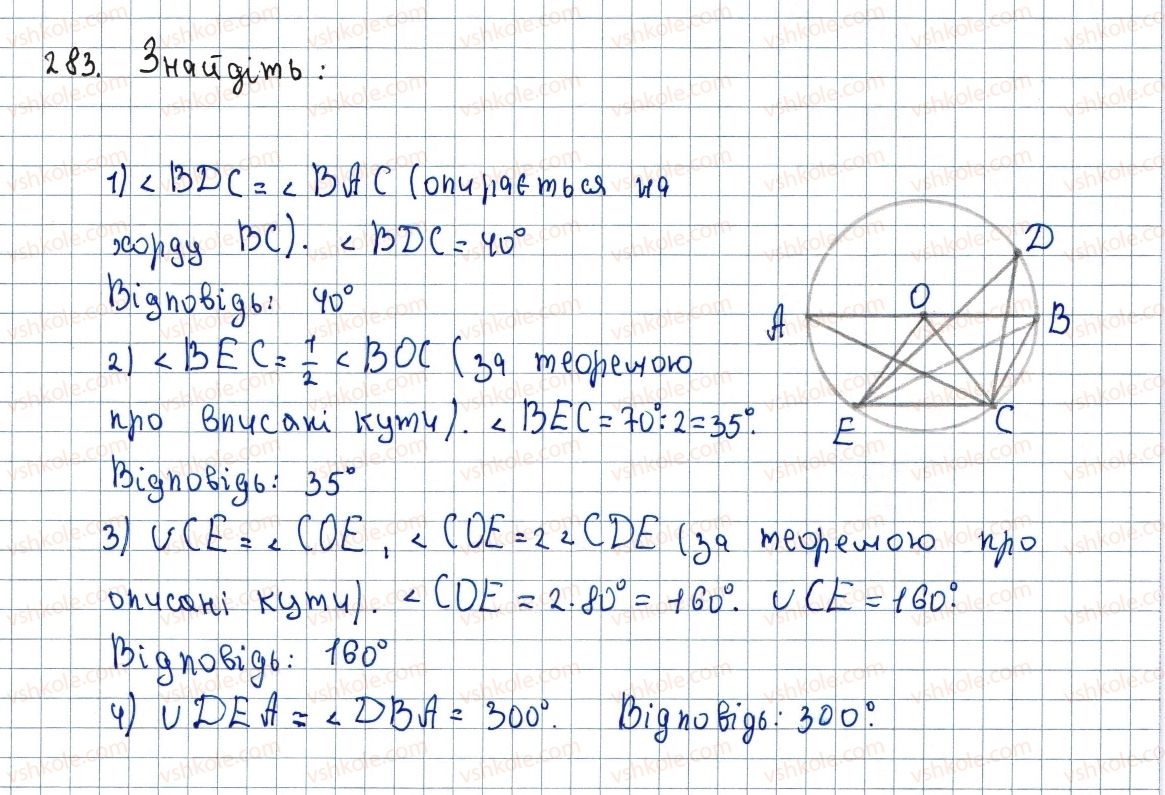 283. Знайдіть:
1) < BDC = < BAC (опирається на
хорду BC). < BDC = 40°
Відповідь: 40°
2) < BEC = 1/2 < BOC (за теоремою
про вписані кути). < BEC = 70°:2=35°.
Відповідь: 35°
3) ∪CE = < COE, < COE = 2 < CDE (за теоремою про
описані кути). < COE = 2·80° = 160°. ∪CE = 160°.
Відповідь: 160°
4) ∪DEA = < DBA = 300°. Відповідь: 300°.
D
O
A
B
E
C
vshkole.com